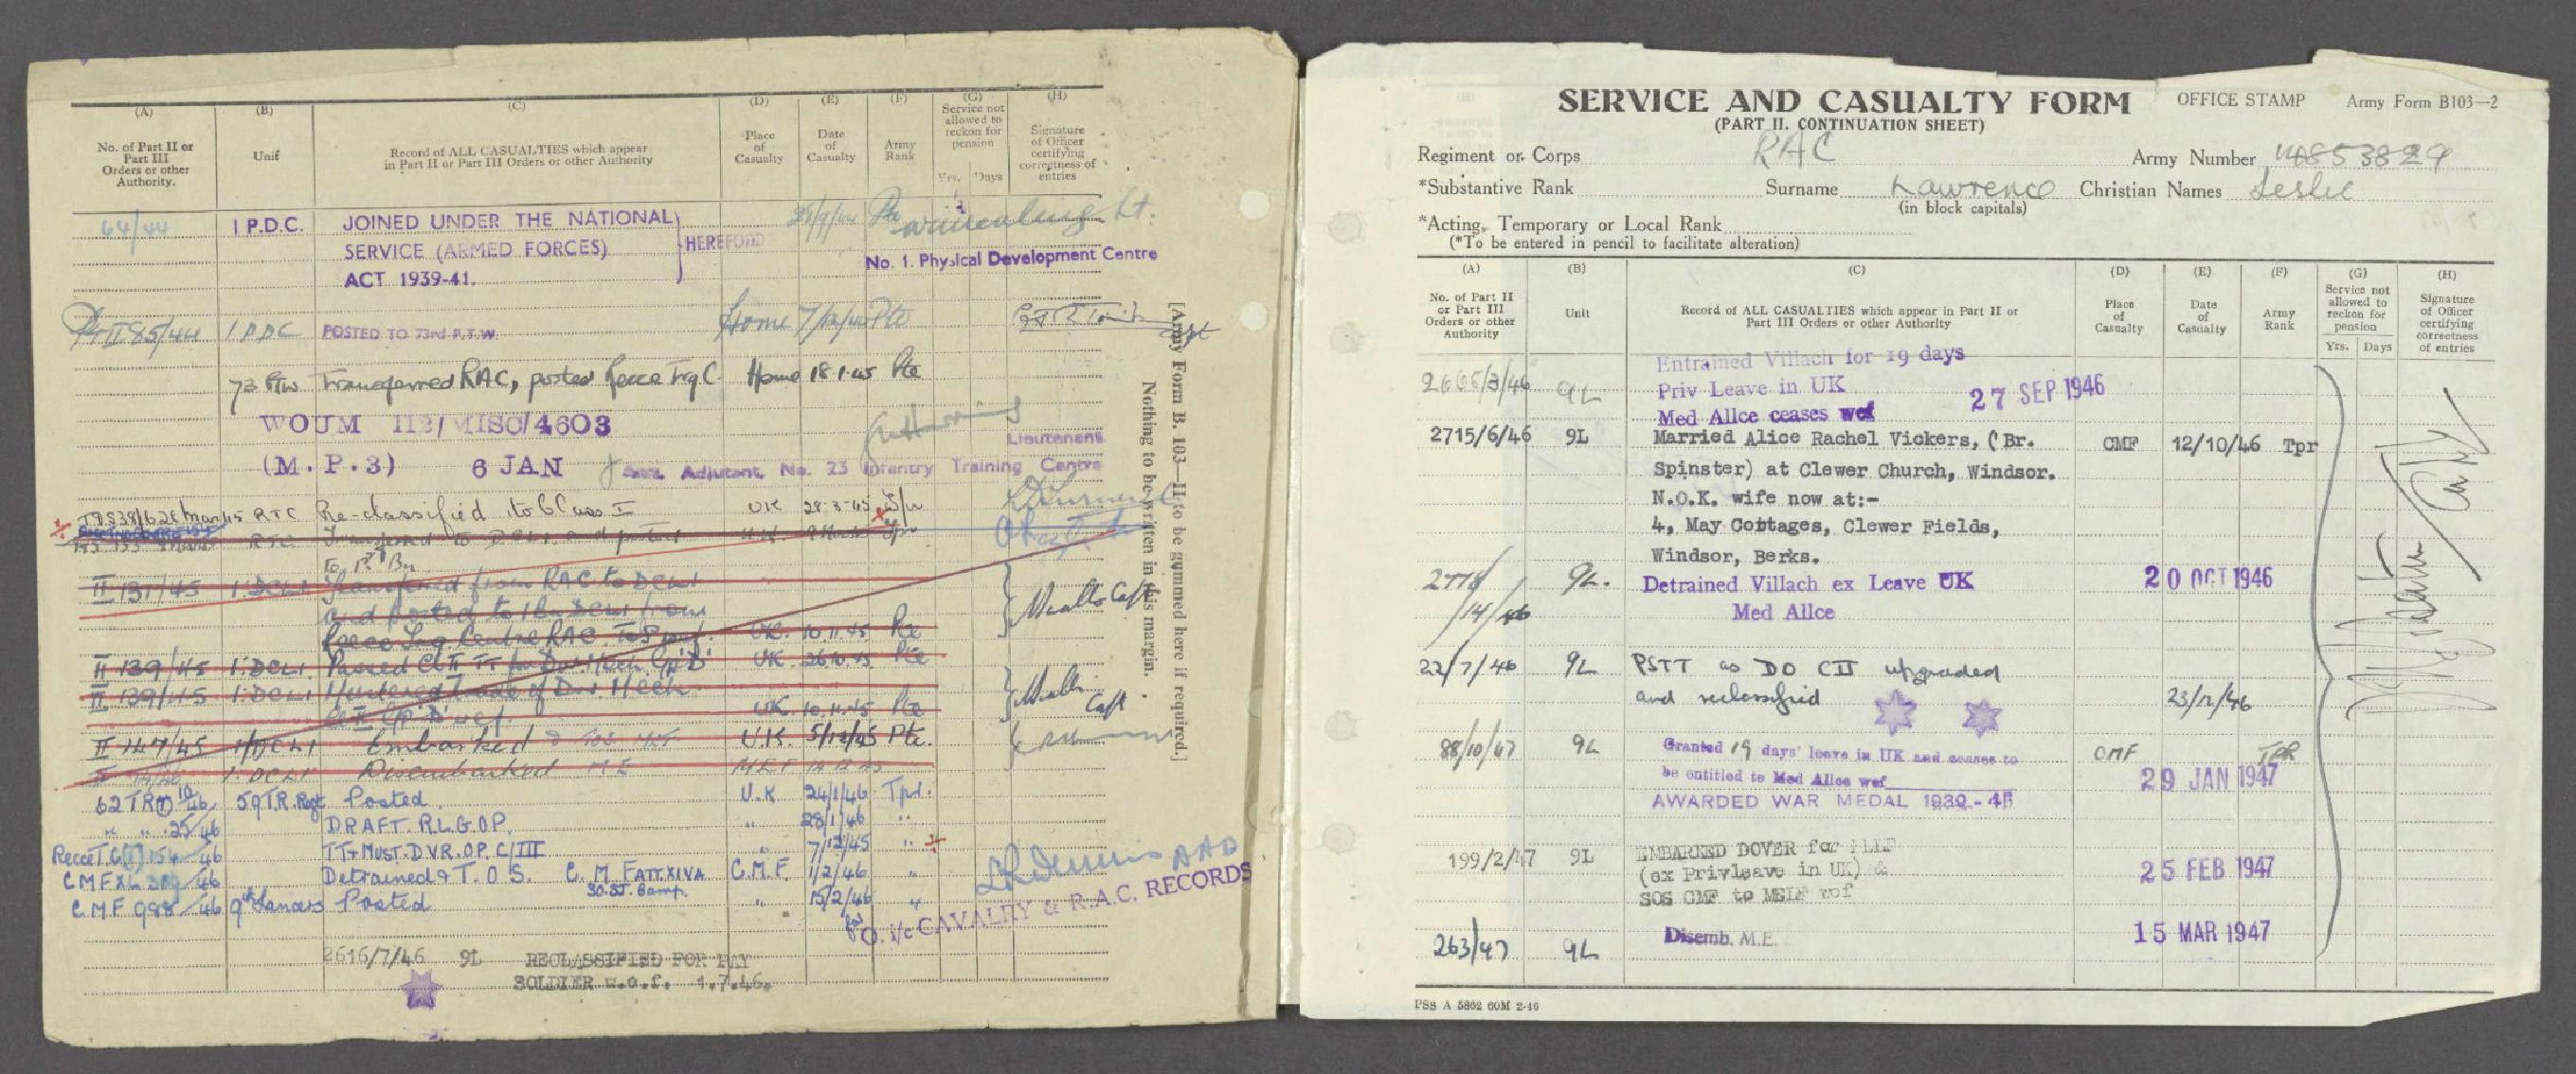 (A) (B) (C) (D) (E) (F) (G) (H)
No. of Part II or Part III Orders or other Authority.
Unit
Record of ALL CASUALTIES which appear in Part II or Part III Orders or other Authority
Place of Casualty
Date of Casualty
Army Rank
Service not allowed to reckon for pension
Yrs. Days
Signature of Officer certifying correctness of entries
64/44 1 P.D.C. JOINED UNDER THE NATIONAL
SERVICE (ARMED FORCES) HEREFORD
ACT 1939-41.
No. 1. Physical Development Centre
Pt II 85/44 1 PDC POSTED TO 73rd P.T.W. Home Pte
73 PTW Transferred RAC, posted Recce Trg C. Home 18.1.45 Pte
WOUM 112/MISC/4603
(M.P.3) 6 JAN
Lieutenant
Adjutant, No. 23 Infantry Training Centre
RTC Re-classified to Class I UK 28.3.45
RTC Transferred to DCLI and posted
to 1st Bn
II 131/45 1.DCLI Transferred from RAC to DCLI
and posted to 1Bn DCLI from
Recce Trg Centre RAC UK. 10.11.45 Pte
II 139/45 1.DCLI Passed Cl II TT for UK. Pte
II 139/45 1.DCLI Mustered Trade of Dvr Mech
UK. 10.11.45 Pte
Capt
II 147/45 1/DCLI Embarked U.K. 5/12/45 Pte.
1.DCLI Disembarked M.E. MEF
62TR(T) 10/46 59 T.R. Regt Posted. U.K 24/1/46 Tpr.
" " 25/46 DRAFT. R.L.G.O.P. " 28/1/46 "
RecceT.C(T) 46 TT+MUST.DVR.OP. C/III " 7/12/45 "
CMF 46 Detrained & T.O.S. C.M.F. 1/2/46 "
C M F 998/46 9th Lancers Posted " 15/2/46 "
O. i/c CAVALRY & R.A.C. RECORDS
2616/7/46 9L RECLASSIFIED FOR PAY
SOLDIER w.e.f. 1.7.46.
[Army Form B. 103—II to be gummed here if required.]
Nothing to be written in this margin.
SERVICE AND CASUALTY FORM OFFICE STAMP Army Form B103—2
(PART II. CONTINUATION SHEET)
Regiment or Corps RAC Army Number 14853829
*Substantive Rank Surname Lawrence Christian Names Leslie
(in block capitals)
*Acting, Temporary or Local Rank
(*To be entered in pencil to facilitate alteration)
(A) (B) (C) (D) (E) (F) (G) (H)
No. of Part II or Part III Orders or other Authority
Unit
Record of ALL CASUALTIES which appear in Part II or Part III Orders or other Authority
Place of Casualty
Date of Casualty
Army Rank
Service not allowed to reckon for pension
Yrs. Days
Signature of Officer certifying correctness of entries
Entrained Villach for 19 days
9L Priv Leave in UK 27 SEP 1946
Med Allce ceases wef
2715/6/46 9L Married Alice Rachel Vickers, (Br. CMF 12/10/46 Tpr
Spinster) at Clewer Church, Windsor.
N.O.K. wife now at:-
4, May Cottages, Clewer Fields,
Windsor, Berks.
9L. Detrained Villach ex Leave UK 20 OCT 1946
/14/46 Med Allce
22/7/46 9L PSTT as DO CII upgraded
and reclassified
88/10/47 9L Granted 19 days' leave in UK and ceases to CMF TPR
be entitled to Med Allce wef 29 JAN 1947
AWARDED WAR MEDAL 1939-45
199/2/47 9L EMBARKED DOVER for
(ex Privleave in UK) & 25 FEB 1947
SOS CMF to MELF wef
263/47 9L Disemb. M.E. 15 MAR 1947
PSS A 5862 60M 2-46